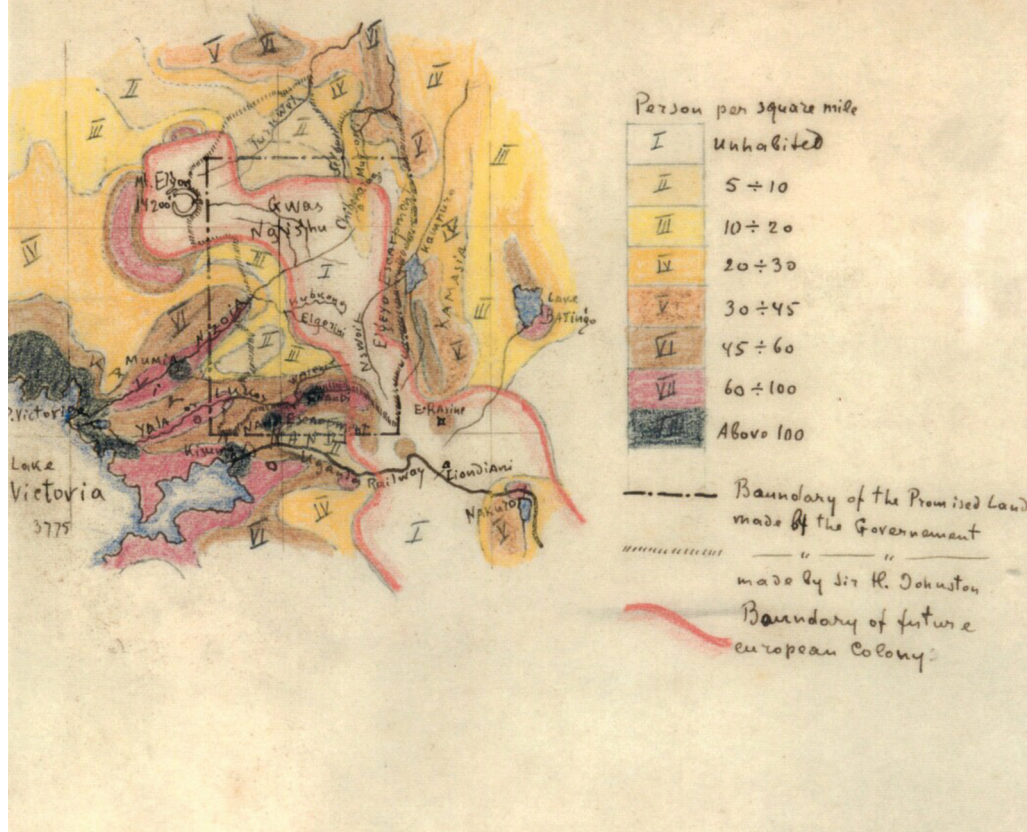 V
VI
VII
II
IV
IV
III
Turkwel
II
V
III
Mt. Elgon
14200
Gwas
Ngishu
IV
III
I
Kamasia
III
Elgeyo Escarpment
VI
Nzoia
Elgeyo
II
III
Lake
Baringo
Mumia
VI
Lukos
Nandi
E. Ravine
P. Victoria
Yala
Nandi
Escarpment
Kisumu
Uganda
Railway
Liondiani
Lake
Victoria
3775
VI
IV
I
Nakuro
V
Person per square mile
I Unhabited
II 5÷10
III 10÷20
IV 20÷30
V 30÷45
VI 45÷60
VII 60÷100
VIII Above 100
Baundary of the Promised Land
made by the Governement
— " — " —
made by Sir H. Johnston
Baundary of future
european Colony